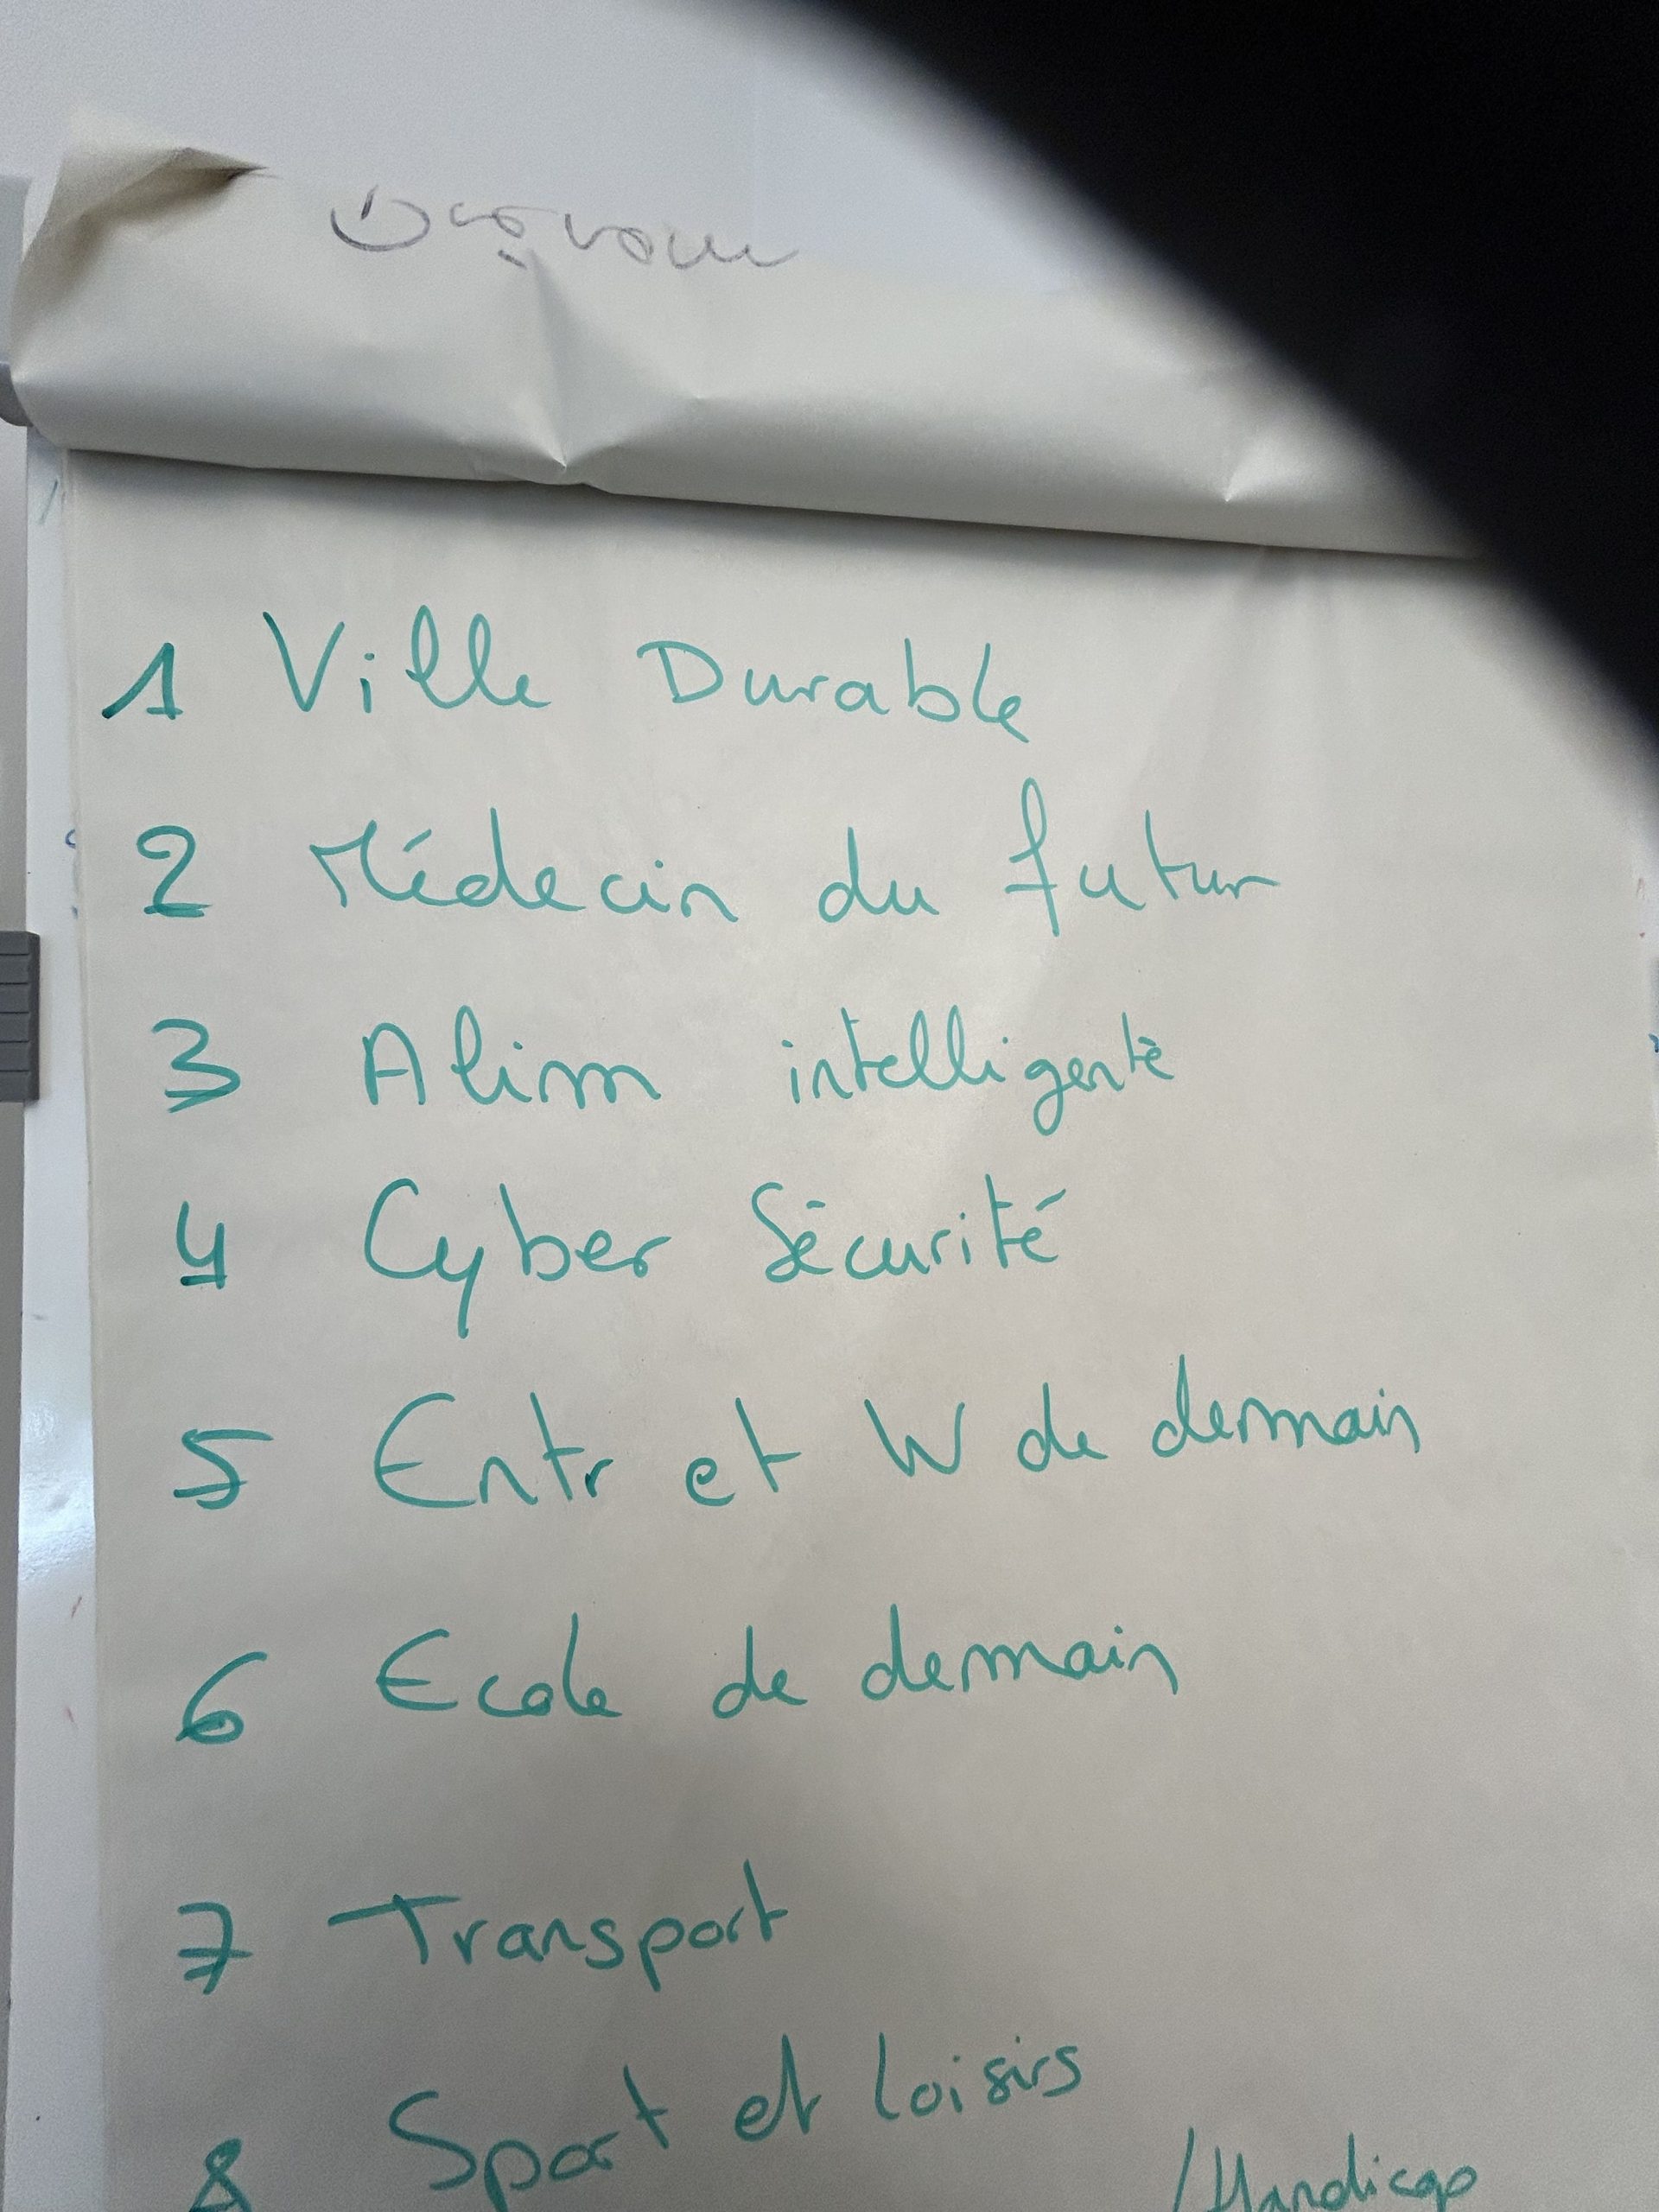 1 Ville Durable
2 Médecin du futur
3 Alim intelligente
4 Cyber Sécurité
5 Entr et W de demain
6 Ecole de demain
7 Transport
8 Sport et loisirs
/Handicap